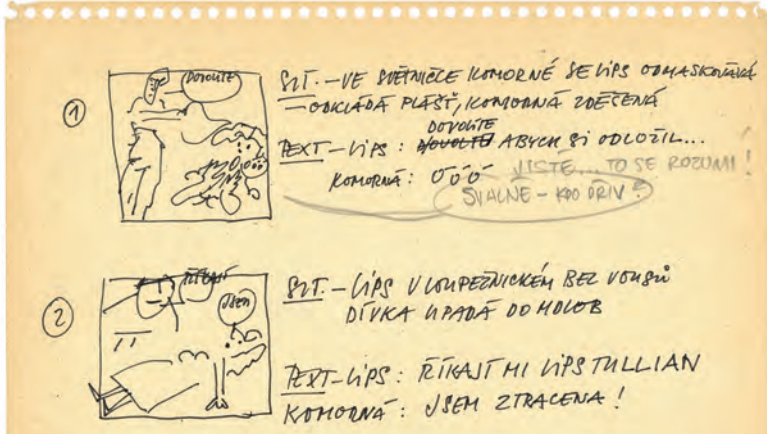 ①
DOVOLITE
SIT. – VE SVĚTNIČCE KOMORNÉ SE LIPS ODMASKOVÁVÁ
– ODKLÁDÁ PLÁŠŤ, KOMORNÁ ZDĚŠENÁ
DOVOLITE
TEXT – LIPS : ABYCH SI ODLOŽIL...
KOMORNÁ : ÓÓÓ JISTE... TO SE ROZUMÍ !
SVALNE – KDO DRIV ?
②
ŘÍKAJÍ
JSEM
SIT. – LIPS V LOUPEŽNICKÉM BEZ VOUSŮ
DÍVKA UPADÁ DO MDLOB
TEXT – LIPS : ŘÍKAJÍ MI LIPS TULLIAN
KOMORNÁ : JSEM ZTRACENA !